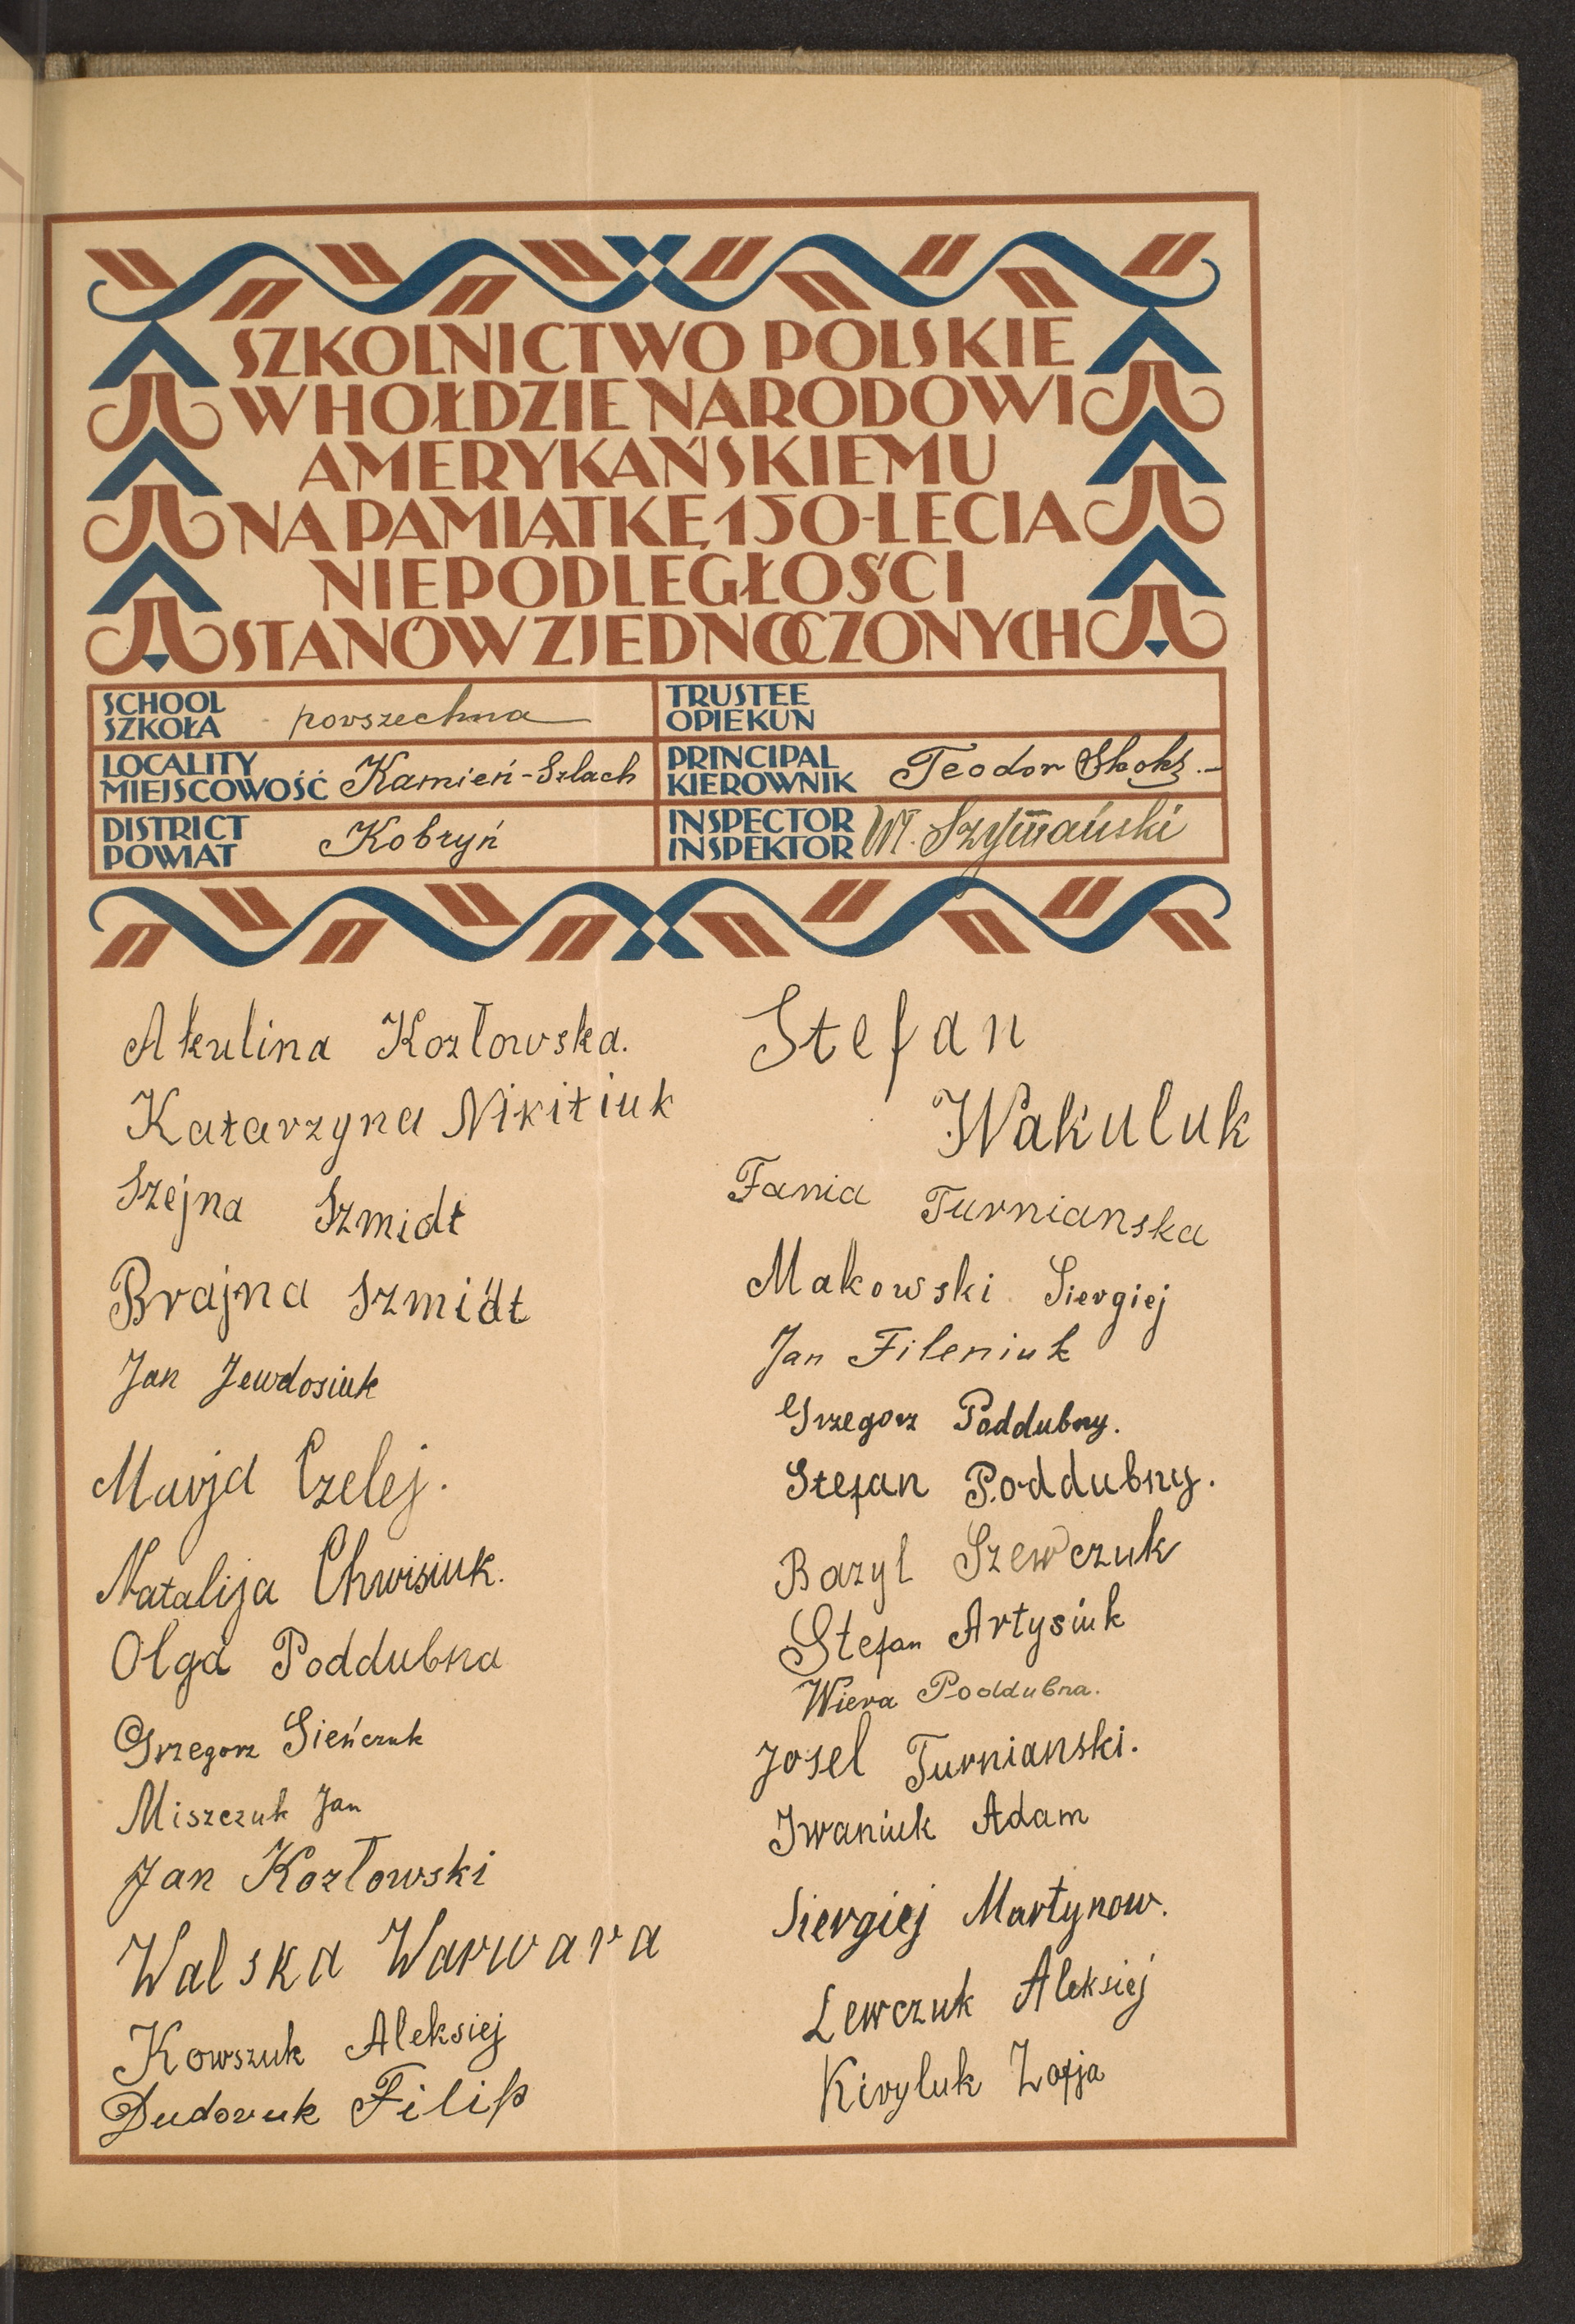 SZKOLNICTWO POLSKIE
W HOŁDZIE NARODOWI
AMERYKAŃSKIEMU
NA PAMIĄTKĘ 150-LECIA
NIEPODLEGŁOŚCI
STANÓW ZJEDNOCZONYCH
SCHOOL
SZKOŁA powszechna
TRUSTEE
OPIEKUN
LOCALITY
MIEJSCOWOŚĆ Kamień-Szlach
PRINCIPAL
KIEROWNIK Teodor
DISTRICT
POWIAT Kobryń
INSPECTOR
INSPEKTOR Wł. Szymański
Akulina Kozłowska.
Katarzyna Nikitiuk
Szejna Szmidt
Brajna Szmidt
Jan Jewdosiuk
Marja Czelej.
Natalija Chwisiuk.
Olga Poddubna
Grzegorz Sieńczuk
Miszczuk Jan
Jan Kozłowski
Walska Warwara
Kowszuk Aleksiej
Filip
Stefan
Wakuluk
Fania Turnianska
Makowski Siergiej
Jan Fileniuk
Grzegorz Poddubny.
Stefan Poddubny.
Bazyl Szewczuk
Stefan Artysiuk
Wiera Poddubna.
Josel Turnianski.
Iwaniuk Adam
Siergiej Martynow.
Lewczuk Aleksiej
Kiryluk Zofja